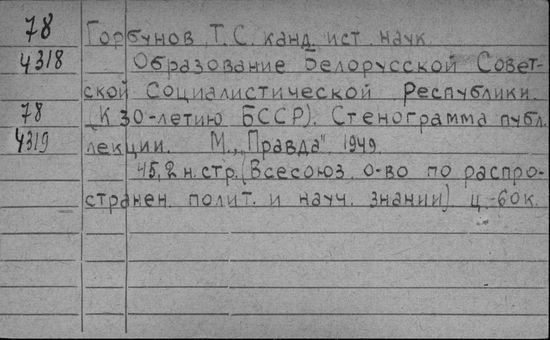 78 Горбунов, Т.С. канд. ист. наук.
4318 Образование Белорусской Совет-
ской Социалистической Республики.
78 (К 30-летию БССР). Стенограмма публ.
4319 лекции. М., „Правда“ 1949.
45, 2 н. стр. (Всесоюз. о-во по распро-
странен. полит. и науч. знаний) ц.-60к.